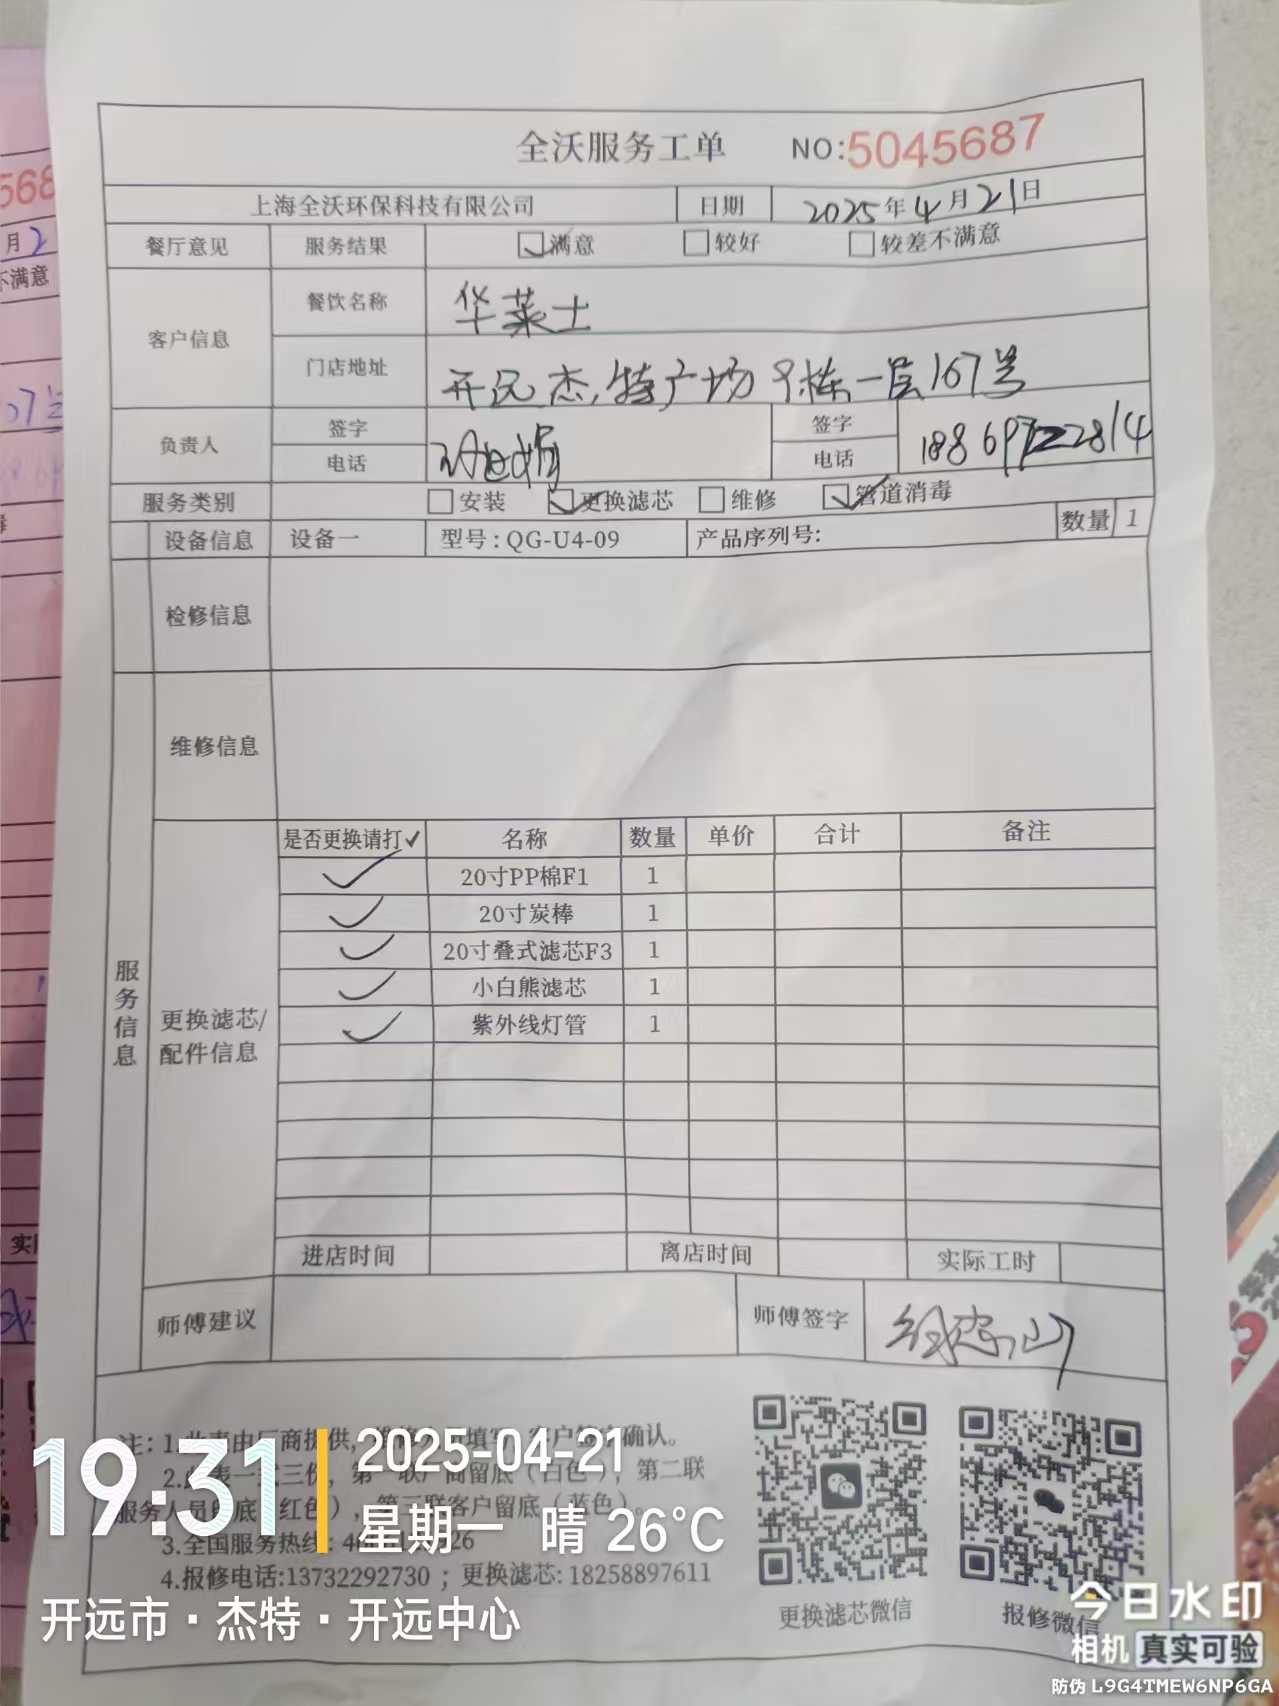 全沃服务工单 NO:5045687
上海全沃环保科技有限公司 日期 2025年4月21日
餐厅意见 服务结果 满意 较好 较差不满意
客户信息 餐饮名称 华莱士
门店地址 开远杰特广场9栋一层167号
负责人 签字 签字
电话 电话
服务类别 安装 更换滤芯 维修 管道消毒
设备信息 设备一 型号:QG-U4-09 产品序列号: 数量 1
检修信息
维修信息
服务信息
更换滤芯/
配件信息
是否更换请打✓ 名称 数量 单价 合计 备注
✓ 20寸PP棉F1 1
✓ 20寸炭棒 1
✓ 20寸叠式滤芯F3 1
✓ 小白熊滤芯 1
✓ 紫外线灯管 1
进店时间 离店时间 实际工时
师傅建议 师傅签字
注:1.此表由厂商提供, 填写, 客户 确认。
2. 表一 三份,第一联厂商留底(白色),第二联
服务人员留底(红色),第三联客户留底(蓝色)。
3.全国服务热线: 26
4.报修电话:13732292730 ; 更换滤芯:18258897611
更换滤芯微信
报修微信
19:31
2025-04-21
星期一 晴 26°C
开远市·杰特·开远中心
今日水印
相机 真实可验
防伪 L9G4TMEW6NP6GA
568
月2
不满意